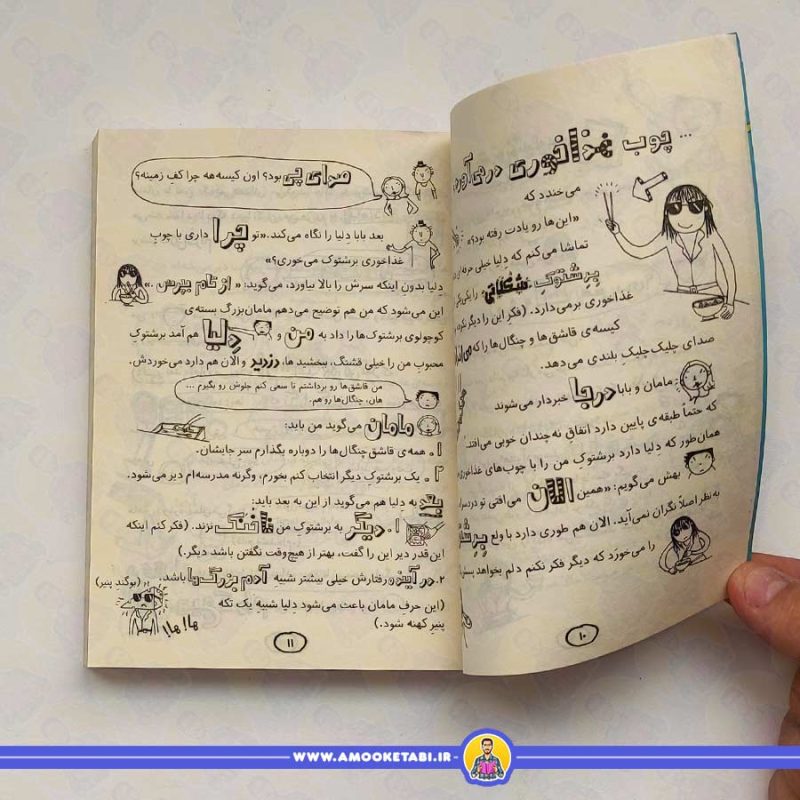 ... چوب غذاخوری درمی‌آورد
می‌خندد که
«این‌ها رو یادت رفته بود؟»
تماشا می‌کنم که دِلیا خیلی حرفه‌ای
بِرِشتوکِ شکلاتی را یکی‌یکی
غذاخوری برمی‌دارد. (فکرِ این را دیگر نکرده
کیسه‌ی قاشق‌ها و چنگال‌ها را که
صدای جلیک جلیکِ بلندی می‌دهد.
مامان و بابا درجا خبردار می‌شوند
که حتماً طبقه‌ی پایین دارد اتفاقِ نه‌چندان خوبی می‌افتد.
همان‌طور که دِلیا دارد برشتوکِ من را با چوب‌های غذاخوری
بهش می‌گویم: «همین الآن می‌افتی تو دردسر
به نظر اصلاً نگران نمی‌آید. الان هم طوری دارد با ولع
را می‌خورَد که دیگر فکر نکنم دلم بخواهد
۱۰
صدای چی بود؟ اون کیسه‌هه چرا کفِ زمینه؟
بعد بابا دِلیا را نگاه می‌کند. «تو چرا داری با چوبِ
غذاخوری برشتوک می‌خوری؟»
دِلیا بدون اینکه سرش را بالا بیاورد، می‌گوید: «از تام بپرس.»
این می‌شود که من هم توضیح می‌دهم مامان‌بزرگ بسته‌ی
کوچولوی برشتوک‌ها را داد به من و دِلیا هم آمد برشتوکِ
محبوبِ من را خیلی قشنگ، ببخشید ها، دزدید و الان هم دارد می‌خوردش.
من قاشق‌ها رو برداشتم تا سعی کنم جلوش رو بگیرم ...
هان، چنگال‌ها رو هم.
مامان می‌گوید من باید:
۱. همه‌ی قاشق چنگال‌ها را دوباره بگذارم سر جایشان.
۲. یک برشتوکِ دیگر انتخاب کنم بخورم، وگرنه مدرسه‌ام دیر می‌شود.
بعد به دِلیا هم می‌گوید از این به بعد باید:
۱. دیگر به برشتوکِ من ناخنک نزند. (فکر کنم اینکه
این‌قدر دیر این را گفت، بهتر از هیچ‌وقت نگفتن باشد دیگر.)
۲. در آینده رفتارش خیلی بیشتر شبیه آدم بزرگ‌ها باشد.
(این حرفِ مامان باعث می‌شود دِلیا شبیه یک تکه
پنیرِ کهنه شود.)
(بوگندِ پنیر)
ها! ها!
۱۱
WWW.AMOOKETABI.IR